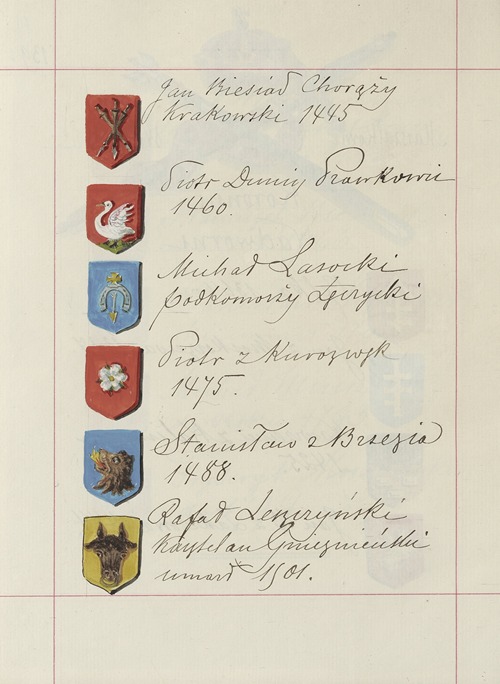 Jan Biesiad Chorąży
Krakowski 1445
Piotr Dunin Prawkowic
1460.
Michał Lasocki
podkomorzy Łęczycki
Piotr z Kurozwęk
1475.
Stanisław z Brzezia
1488.
Rafał Leszczyński
Kasztelan Gnieźnieński
umarł 1501.